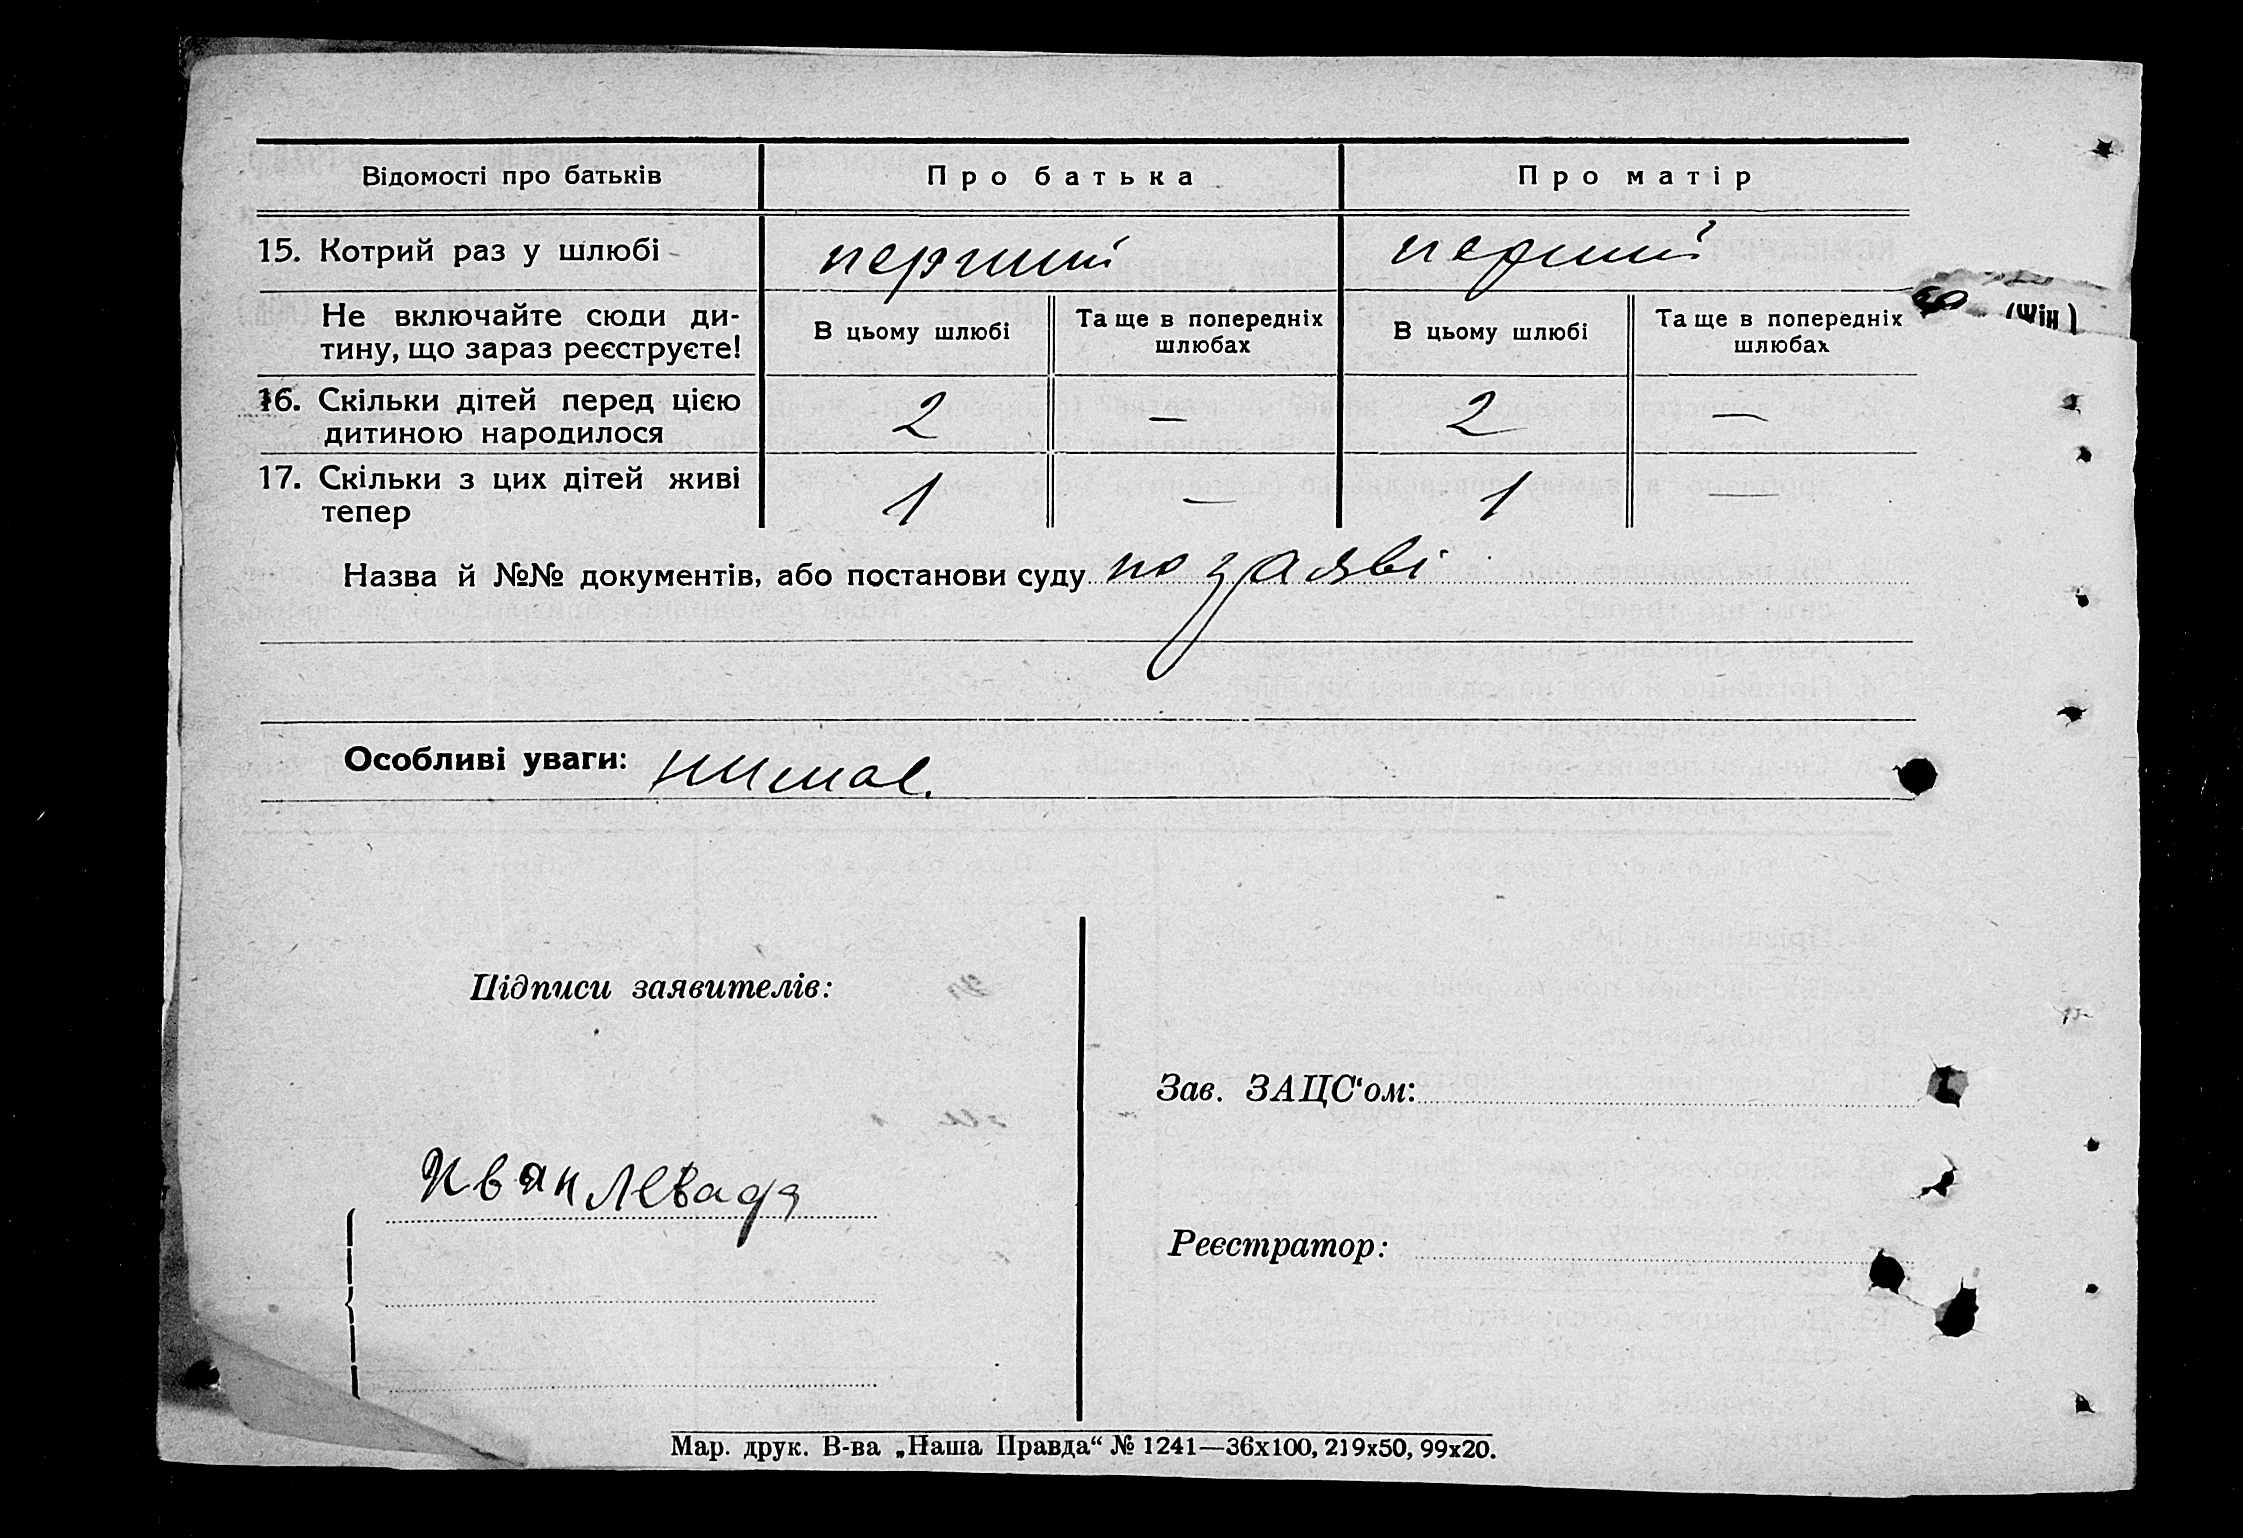 Відомості про батьків
Про батька
Про матір
15. Котрий раз у шлюбі
перший
перший
Не включайте сюди ди-
тину, що зараз реєструєте!
В цьому шлюбі
Та ще в попередніх
шлюбах
В цьому шлюбі
Та ще в попередніх
шлюбах
(жін)
16. Скільки дітей перед цією
дитиною народилося
2
—
2
—
17. Скільки з цих дітей живі
тепер
1
—
1
—
Назва й №№ документів, або постанови суду по заяві
Особливі уваги: нимає.
Підписи заявителів:
Иван Левада
Зав. ЗАЦС'ом:
Реєстратор:
Мар. друк. В-ва „Наша Правда“ № 1241—36х100, 219х50, 99х20.